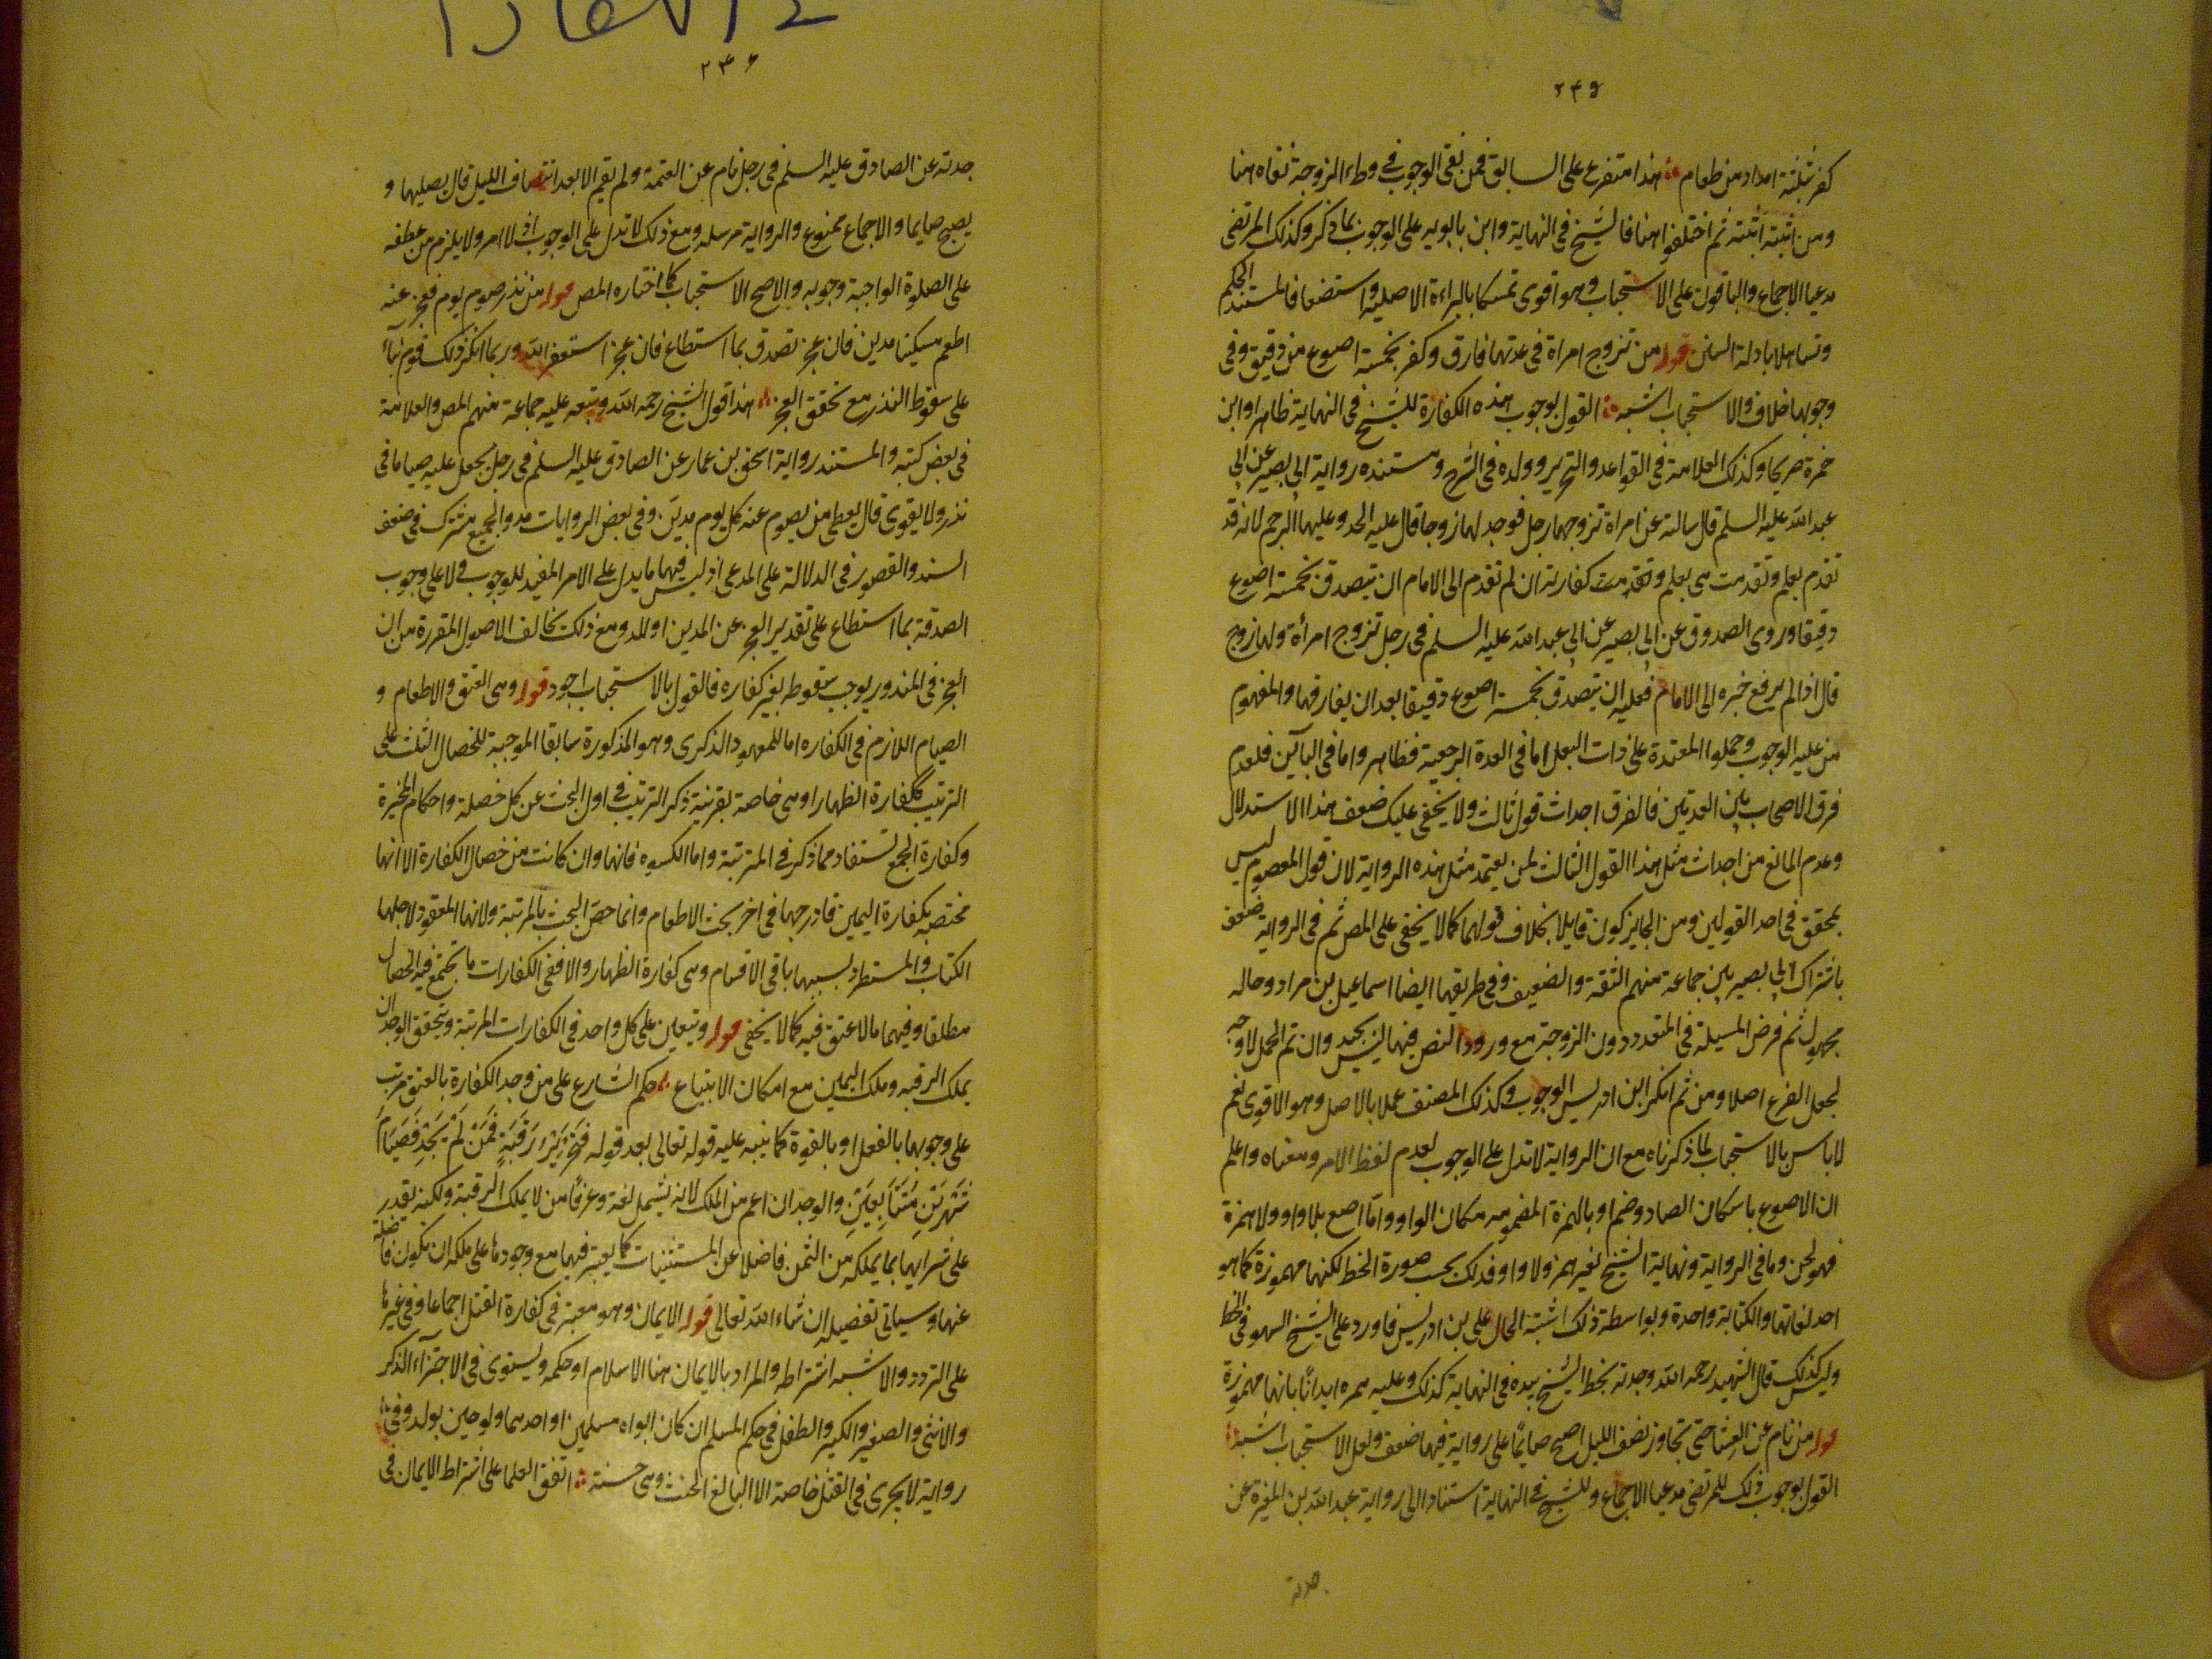 ٢٤٥
كفر بثلثة امداد من طعام هذا متفرع على السابق فمن نفى الوجوب في وطء الزوجة نفاه هنا
ومن اثبته اثبته ثم اختلفوا هنا فالشيخ في النهاية وابن بابويه على الوجوب بما ذكر وكذلك المرتضى
مدعيا الاجماع والباقون على الاستحباب وهو اقوى تمسكا بالبراءة الاصلية واستضعافا لمستند الحكم
وتساهلا بادلة السنن قوله من تزوج امراة في عدتها فارق وكفر بخمسة اصوع من دقيق وفي
وجوبها خلاف والاستحباب اشبه القول بوجوب هذه الكفارة للشيخ في النهاية ظاهرا وابن
حمزة صريحا وكذلك العلامة في القواعد والتحرير وولده في الشرح ومستنده رواية ابي بصير عن ابي
عبد الله عليه السلم قال سالته عن امراة تزوجها رجل فوجد لها زوجا قال عليه الحد وعليها الرجم لانه قد
تقدم بعلم وتقدمت هي بعلم وتقدمت كفارته ان لم تقدم الى الامام ان يتصدق بخمسة اصوع
دقيقا وروى الصدوق عن ابي بصير عن ابي عبد الله عليه السلم في رجل تزوج امرأة ولها زوج
قال اذا لم يرفع خبره الى الامام فعليه ان يتصدق بخمسة اصوع دقيقا بعد ان يفارقها والمفهوم
من عليه الوجوب وحملوا المعتدة على ذات البعل اما في العدة الرجعية فظاهر واما في البآين فلعدم
فرق الاصحاب بين العدتين فالفرق احداث قول ثالث ولا يخفى عليك ضعف هذا الاستدلال
وعدم المانع من احداث مثل هذا القول الثالث لمن يعتمد مثل هذه الرواية لان قول المعصوم ليس
بمحقق في احد القولين ومن الجايز كون قايلا بخلاف قولهما كما لا يخفى على المص ثم في الرواية ضعف
باشتراك ابي بصير بين جماعة منهم الثقة والضعيف وفي طريقها ايضا اسماعيل بن مراد وحاله
مجهول ثم فرض المسيلة في المتعدد دون الزوجة مع ورود النص فيها ليس بجيد وان تم الحمل لا وجه
لجعل الفرع اصلا ومن ثم انكر ابن ادريس الوجوب وكذلك المصنف عملا بالاصل وهو الاقوى نعم
لا باس بالاستحباب لما ذكرناه مع ان الرواية لا تدل على الوجوب لعدم لفظ الامر ومعناه واعلم
ان الاصوع باسكان الصاد وضم او بالهمزة المضمومه مكان الواو واما اصع بلا واو ولا همزة
فهو لحن وما في الرواية ونهاية الشيخ لغير همز ولا واو فذلك بحسب صورة الخط لكنها مهموزة كما هو
احد لغاتها والكتابة واحدة وبواسطة ذلك اشتبه الحال على بن ادريس فاورد على الشيخ السهو في الخط
وليس كذلك قال الشهيد رحمه الله وجدته بخط الشيخ بيده في النهاية كذلك وعليه همزه ايذانا بانها مهموزة
قوله من نام عن العشا حتى تجاوز نصف الليل اصبح صايما على رواية فيها ضعف ولعل الاستحباب اشبه
القول بوجوب ذلك للمرتضى مدعيا الاجماع وللشيخ في النهاية استنادا الى رواية عبد الله بن المغيرة عن
حدثه
٢٤٦
حدثه عن الصادق عليه السلم في رجل نام عن العتمة ولم يقم الا بعد انتصاف الليل قال يصليها و
يصبح صايما والاجماع ممنوع والرواية مرسله ومع ذلك لا تدل على الوجوب اذ لا امر ولا يلزم من عطفه
على الصلوة الواجبة وجوبه والاصح الاستحباب كما اختاره المص قوله من نذر صوم يوم فعجز عنه
اطعم مسكينا مدين فان عجز تصدق بما استطاع فان عجز استغفر الله وربما انكر ذلك قوم بناء
على سقوط النذر مع تحقق العجز هذا قول الشيخ رحمه الله وتبعه عليه جماعة منهم المص والعلامة
في بعض كتبه والمستند رواية اسحق بن عمار عن الصادق عليه السلم في رجل يجعل عليه صياما في
نذر ولا يقوى قال يعطي من يصوم عنه كل يوم مدين وفي بعض الروايات مد والجميع مشترك في ضعف
السند والقصور في الدلالة على المدعى اذ ليس فيهما ما يدل على الامر المفيد للوجوب ولا على وجوب
الصدقة بما استطاع على تقدير العجز عن المدين او المد ومع ذلك يخالف الاصول المقررة من ان
العجز في المنذور يوجب سقوطه بغير كفاره فالقول بالاستحباب اجود قوله وهي العتق والاطعام و
الصيام اللازم في الكفاره اما للمعهود الذكرى وهو المذكورة سابقا الموجبة للخصال الثلث على
الترتيب ككفارة الظهار او هي خاصة بقرينة ذكر الترتيب في اول البحث عن كل خصلة واحكام المخيرة
وكفارة الجمع تستفاد مما ذكر في المرتبة واما الكسوه فانها وان كانت من خصال الكفارة الا انها
مختصه بكفارة اليمين فادرجها في اخر بحث الاطعام وانما خص البحث بالمرتبة ولانها المعقود لاجلها
الكتاب والمستطرد بسببها باقي الاقسام وهي كفارة الظهار والا ففي الكفارات ما يجتمع فيه الخصال
مطلقا وفيها مالا عتق فيه كما لا يخفى قوله ويتعين على كل واحد في الكفارات المرتبة ويتحقق الوجدان
بملك الرقبه وملك اليمين مع امكان الابتياع حكم الشارع على من وجد الكفارة بالعتق مرتب
على وجوبها بالفعل او بالقوة كما ينبه عليه قوله تعالى بعد قوله فَتَحْرِيرُ رَقَبَةٍ فَمَنْ لَمْ يَجِدْ فَصِيَامُ
شَهْرَيْنِ مُتَتَابِعَيْنِ والوجدان اعم من الملك لانه يشمل لغة وعرفا من لا يملك الرقبة ولكنه يقدر
على شرايها بما يملكه من الثمن فاضلا عن المستثنيات كما يعتبر فيها مع وجودها على ملكه ان يكون فاضلة
عنها وسياتي تفصيله ان شاء الله تعالى قوله الايمان وهو معتبر في كفارة القتل اجماعا وفي غيرها
على التردد والاشبه اشتراطه والمراد بالايمان هنا الاسلام او حكمه ويستوي في الاجتزاء الذكر
والانثى والصغير والكبير والطفل في حكم المسلم ان كان ابواه مسلمين او احدهما ولو حين يولد وفي
رواية لا يجزى في القتل خاصة الا البالغ الحنث وهي حسنة اتفق العلما على اشتراط الايمان في